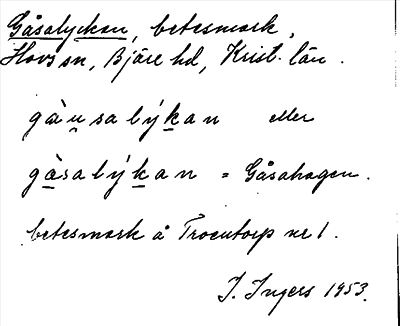 Gåsalyckan, betesmark,
Hovs sn, Bjäre hd, Krist. län.
gàu̠salýk̠an eller
gà̠salýk̠an = Gåsahagen.
betesmark å Troentorp nr 1.
I. Ingers 1953.